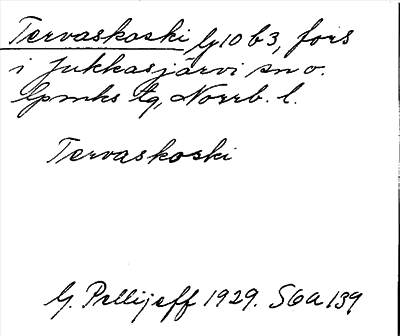 Tervaskoski G10 b3, fors
i Jukkasjärvi sn o.
lpmks tg, Norrb. l.
Tervaskoski
G. Pellijeff 1929. S6a 139